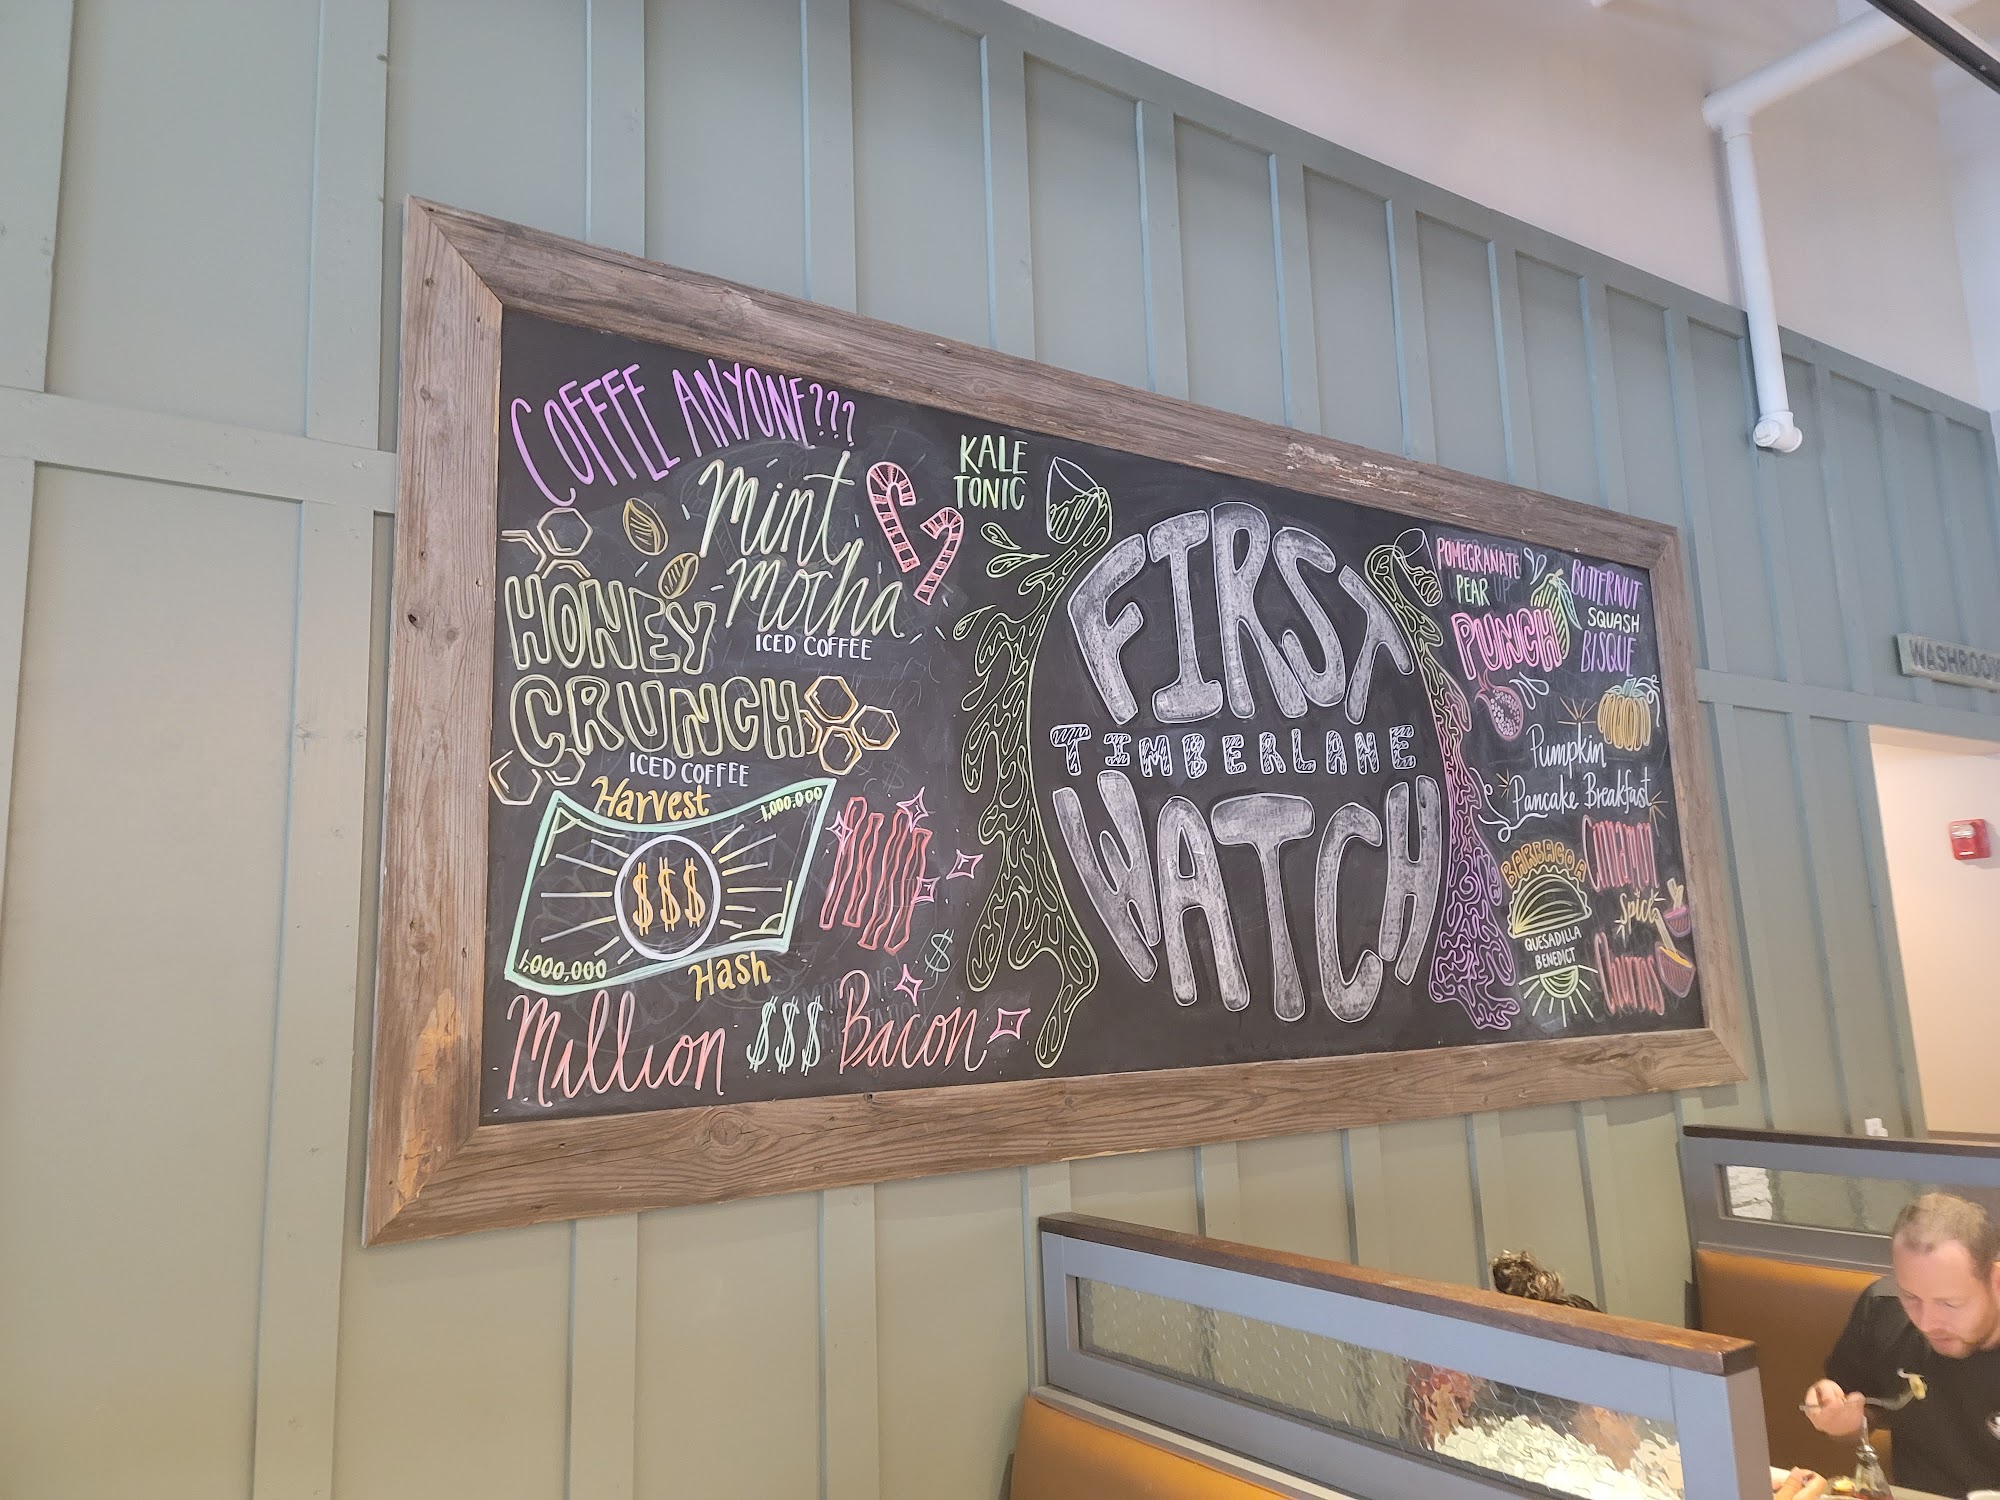 COFFEE ANYONE???
Mint
Mocha
ICED COFFEE
HONEY
CRUNCH
ICED COFFEE
Harvest
1,000,000
$$$
1,000,000
Hash
Million $$$ Bacon
$
KALE
TONIC
FIRST
TIMBERLANE
WATCH
POMEGRANATE
PEAR
PUNCH
BUTTERNUT
SQUASH
BISQUE
Pumpkin
Pancake Breakfast
BARBACOA
QUESADILLA
BENEDICT
Cinnamon
Spice
Churros